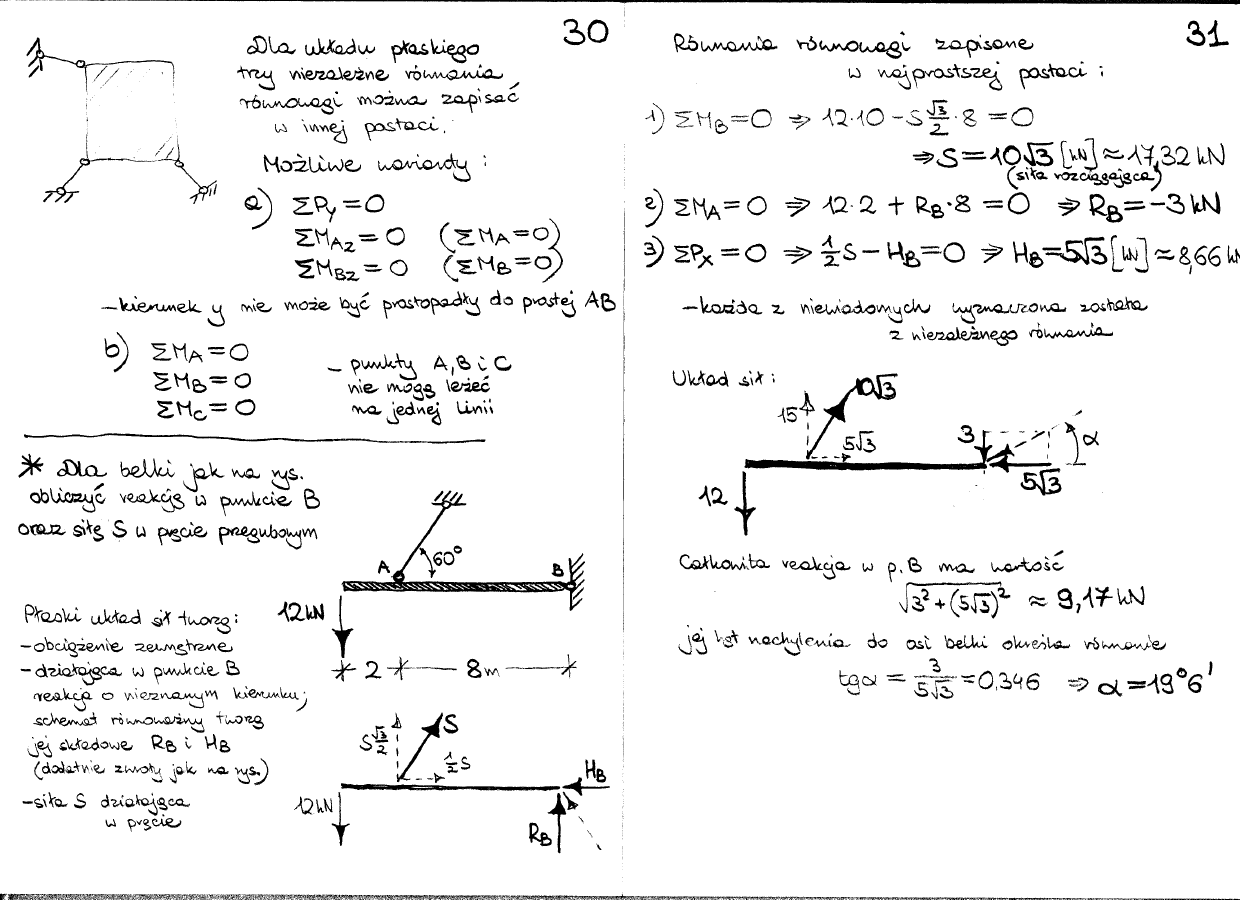 30
Dla układu płaskiego
trzy niezależne równania
równowagi można zapisać
w innej postaci.
Możliwe warianty :
a) ΣPy = 0
ΣMAz = 0 (ΣMA = 0)
ΣMBz = 0 (ΣMB = 0)
– kierunek y nie może być prostopadły do prostej AB
b) ΣMA = 0
ΣMB = 0
ΣMC = 0
– punkty A, B i C
nie mogą leżeć
na jednej linii
* Dla belki jak na rys.
obliczyć reakcję w punkcie B
oraz siłę S w pręcie przegubowym
A
60°
B
12 kN
2
8m
Płaski układ sił tworzą:
– obciążenie zewnętrzne
– działająca w punkcie B
reakcja o nieznanym kierunku;
schemat równoważny tworzą
jej składowe RB i HB
(dodatnie zwroty jak na rys.)
– siła S działająca
w pręcie
S√3/2
S
½S
HB
12 kN
RB
31
Równania równowagi zapisane
w najprostszej postaci :
1) ΣMB = 0 ⇒ 12·10 – S √3/2 · 8 = 0
⇒ S = 10√3 [kN] ≈ 17,32 kN
(siła rozciągająca)
2) ΣMA = 0 ⇒ 12·2 + RB·8 = 0 ⇒ RB = –3 kN
3) ΣPx = 0 ⇒ ½S – HB = 0 ⇒ HB = 5√3 [kN] ≈ 8,66 kN
– każda z niewiadomych wyznaczona została
z niezależnego równania
Układ sił :
10√3
15
5√3
3
α
5√3
12
Całkowita reakcja w p. B ma wartość
√3² + (5√3)² ≈ 9,17 kN
jej kąt nachylenia do osi belki określa równanie
tgα = 3/5√3 = 0,346 ⇒ α = 19°6'